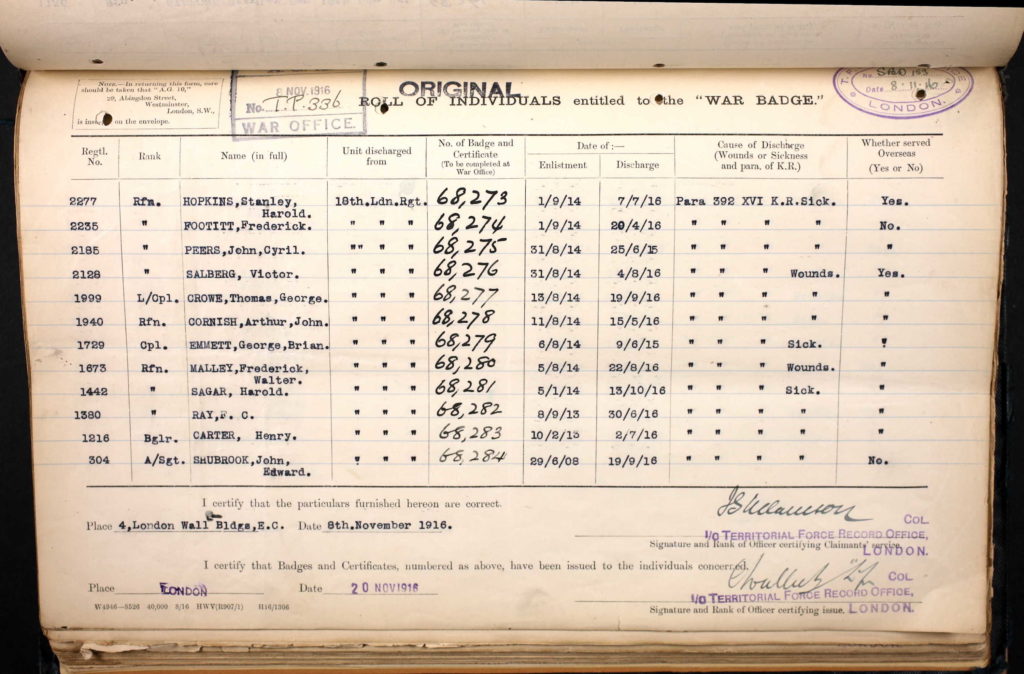 NOTE.—In returning this form, care
should be taken that "A.G. 10,"
29, Abingdon Street,
Westminster,
London, S.W.,
on the envelope.
8 NOV.1916
No. T.P.336
WAR OFFICE.
ORIGINAL
ROLL OF INDIVIDUALS entitled to the "WAR BADGE."
Date 8·11·16
LONDON.
Regtl. No. Rank Name (in full) Unit discharged from No. of Badge and Certificate (To be completed at War Office) Date of :— Enlistment Discharge Cause of Discharge (Wounds or Sickness and para. of K.R.) Whether served Overseas (Yes or No)
2277 Rfn. HOPKINS,Stanley, 18th.Ldn.Rgt. 68,273 1/9/14 7/7/16 Para 392 XVI K.R.Sick. Yes.
Harold.
2235 " FOOTITT,Frederick. " " " 68,274 1/9/14 20/4/16 " " " " No.
2185 " PEERS,John,Cyril. "" " " 68,275 31/8/14 25/6/15 " " " " "
2128 " SALBERG, Victor. " " " 68,276 31/8/14 4/8/16 " " " Wounds. Yes.
1999 L/Cpl. CROWE,Thomas,George. " " " 68,277 13/8/14 19/9/16 " " " " "
1940 Rfn. CORNISH,Arthur,John. " " " 68,278 11/8/14 15/5/16 " " " " "
1729 Cpl. EMMETT,George,Brian. " " " 68,279 6/8/14 9/6/15 " " " Sick. "
1673 Rfn. MALLEY,Frederick, " " " 68,280 5/8/14 22/8/16 " " " Wounds. "
Walter.
1442 " SAGAR, Harold. " " " 68,281 5/1/14 13/10/16 " " " Sick. "
1380 " RAY,F. C. " " " 68,282 8/9/13 30/6/16 " " " " "
1216 Bglr. CARTER, Henry. " " " 68,283 10/2/13 2/7/16 " " " " "
304 A/Sgt. SHUBROOK,John, " " " 68,284 29/6/08 19/9/16 " " " " No.
Edward.
I certify that the particulars furnished hereon are correct.
Place 4,London Wall Bldgs,E.C. Date 8th.November 1916.
COL.
I/c TERRITORIAL FORCE RECORD OFFICE,
Signature and Rank of Officer certifying Claimants' service.
LONDON.
I certify that Badges and Certificates, numbered as above, have been issued to the individuals concerned.
COL
Place LONDON Date 20 NOV1916
I/c TERRITORIAL FORCE RECORD OFFICE,
W4946—8526 40,000 8/16 HWV(R907/1) H16/1306
Signature and Rank of Officer certifying issue. LONDON.